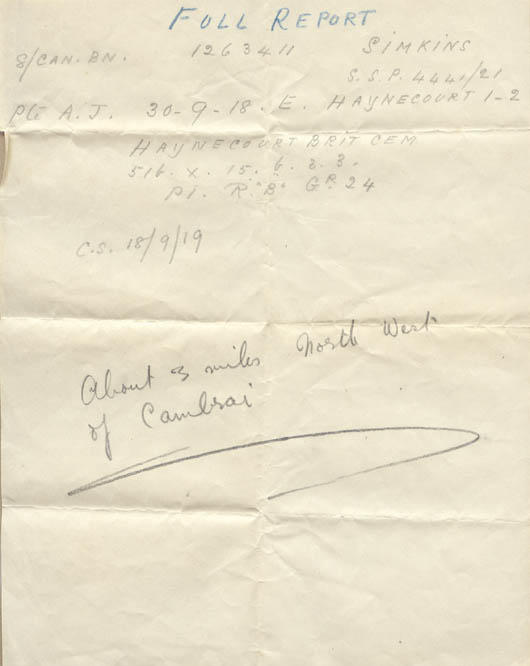 FULL REPORT
8/CAN. BN. 1263411 SIMKINS
S.S.P. 4441/21
Pte A.J. 30-9-18. E. HAYNECOURT 1-2
HAYNECOURT BRIT CEM
51b. X. 15. b. 2. 3.
Pl. R."B" GR. 24
C.S. 18/9/19
About 3 miles North West
of Cambrai